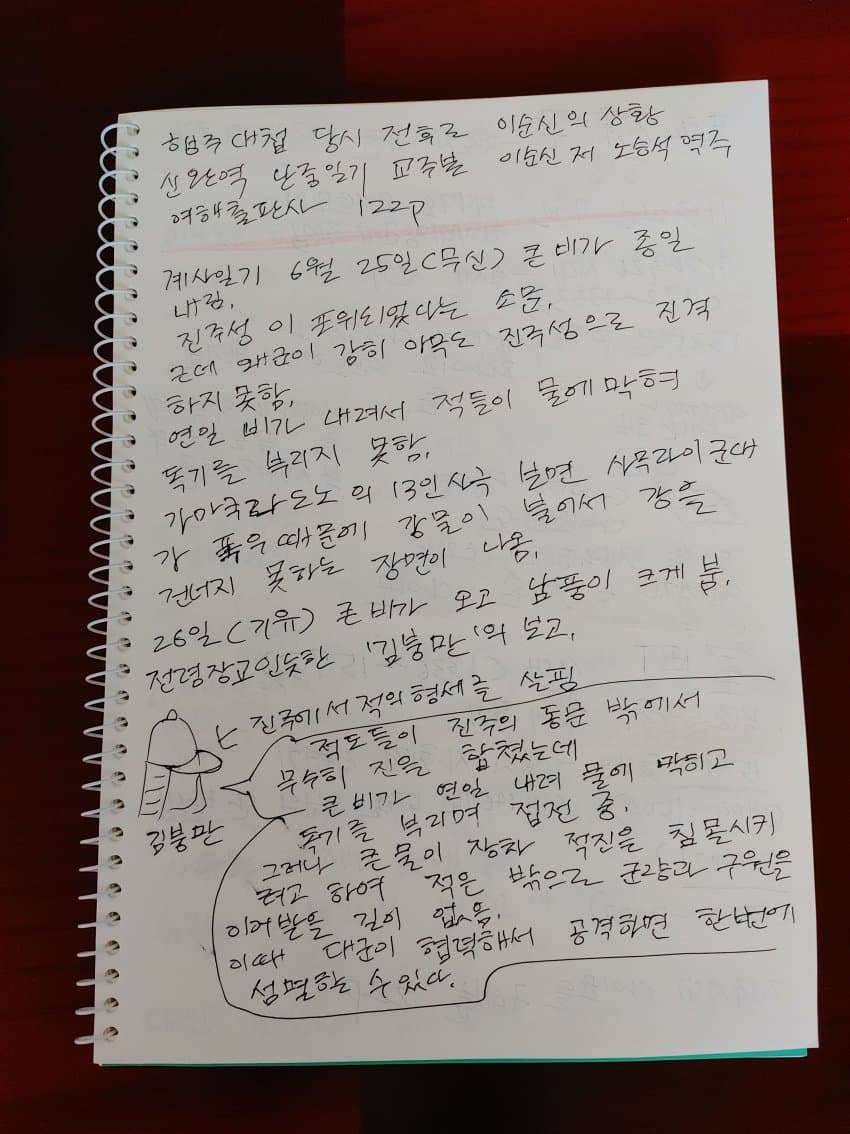 행주대첩 당시 전후로 이순신의 상황
신완역 난중일기 교주본 이순신 저 노승석 역주
여해출판사 122p
계사일기 6월 25일(무신) 큰 비가 종일
내림.
진주성이 포위되었다는 소문.
근데 왜군이 감히 아무도 진주성으로 진격
하지 못함.
연일 비가 내려서 적들이 물에 막혀
독기를 부리지 못함.
가마쿠라도노의 13인 사극 보면 사무라이 군대
가 폭우 때문에 강물이 불어서 강을
건너지 못하는 장면이 나옴.
26일(기유) 큰 비가 오고 남풍이 크게 붐.
전령장교인듯한 '김붕만'의 보고.
진주에서 적의 형세를 살핌
적도들이 진주의 동문 밖에서
무수히 진을 합쳤는데
큰 비가 연일 내려 물에 막히고
독기를 부리며 접전 중.
김붕만
그러나 큰물이 장차 적진을 침몰시키
려고 하여 적은 밖으로 군량과 구원을
이어받을 길이 없음.
이때 대군이 협력해서 공격하면 한번에
섬멸하는 수 있다.